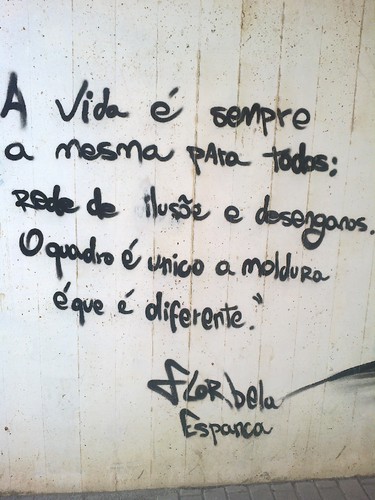 A vida é sempre
a mesma para todos:
rede de ilusõe e desenganos.
O quadro é unico a moldura
é que é diferente."
Florbela
Espanca